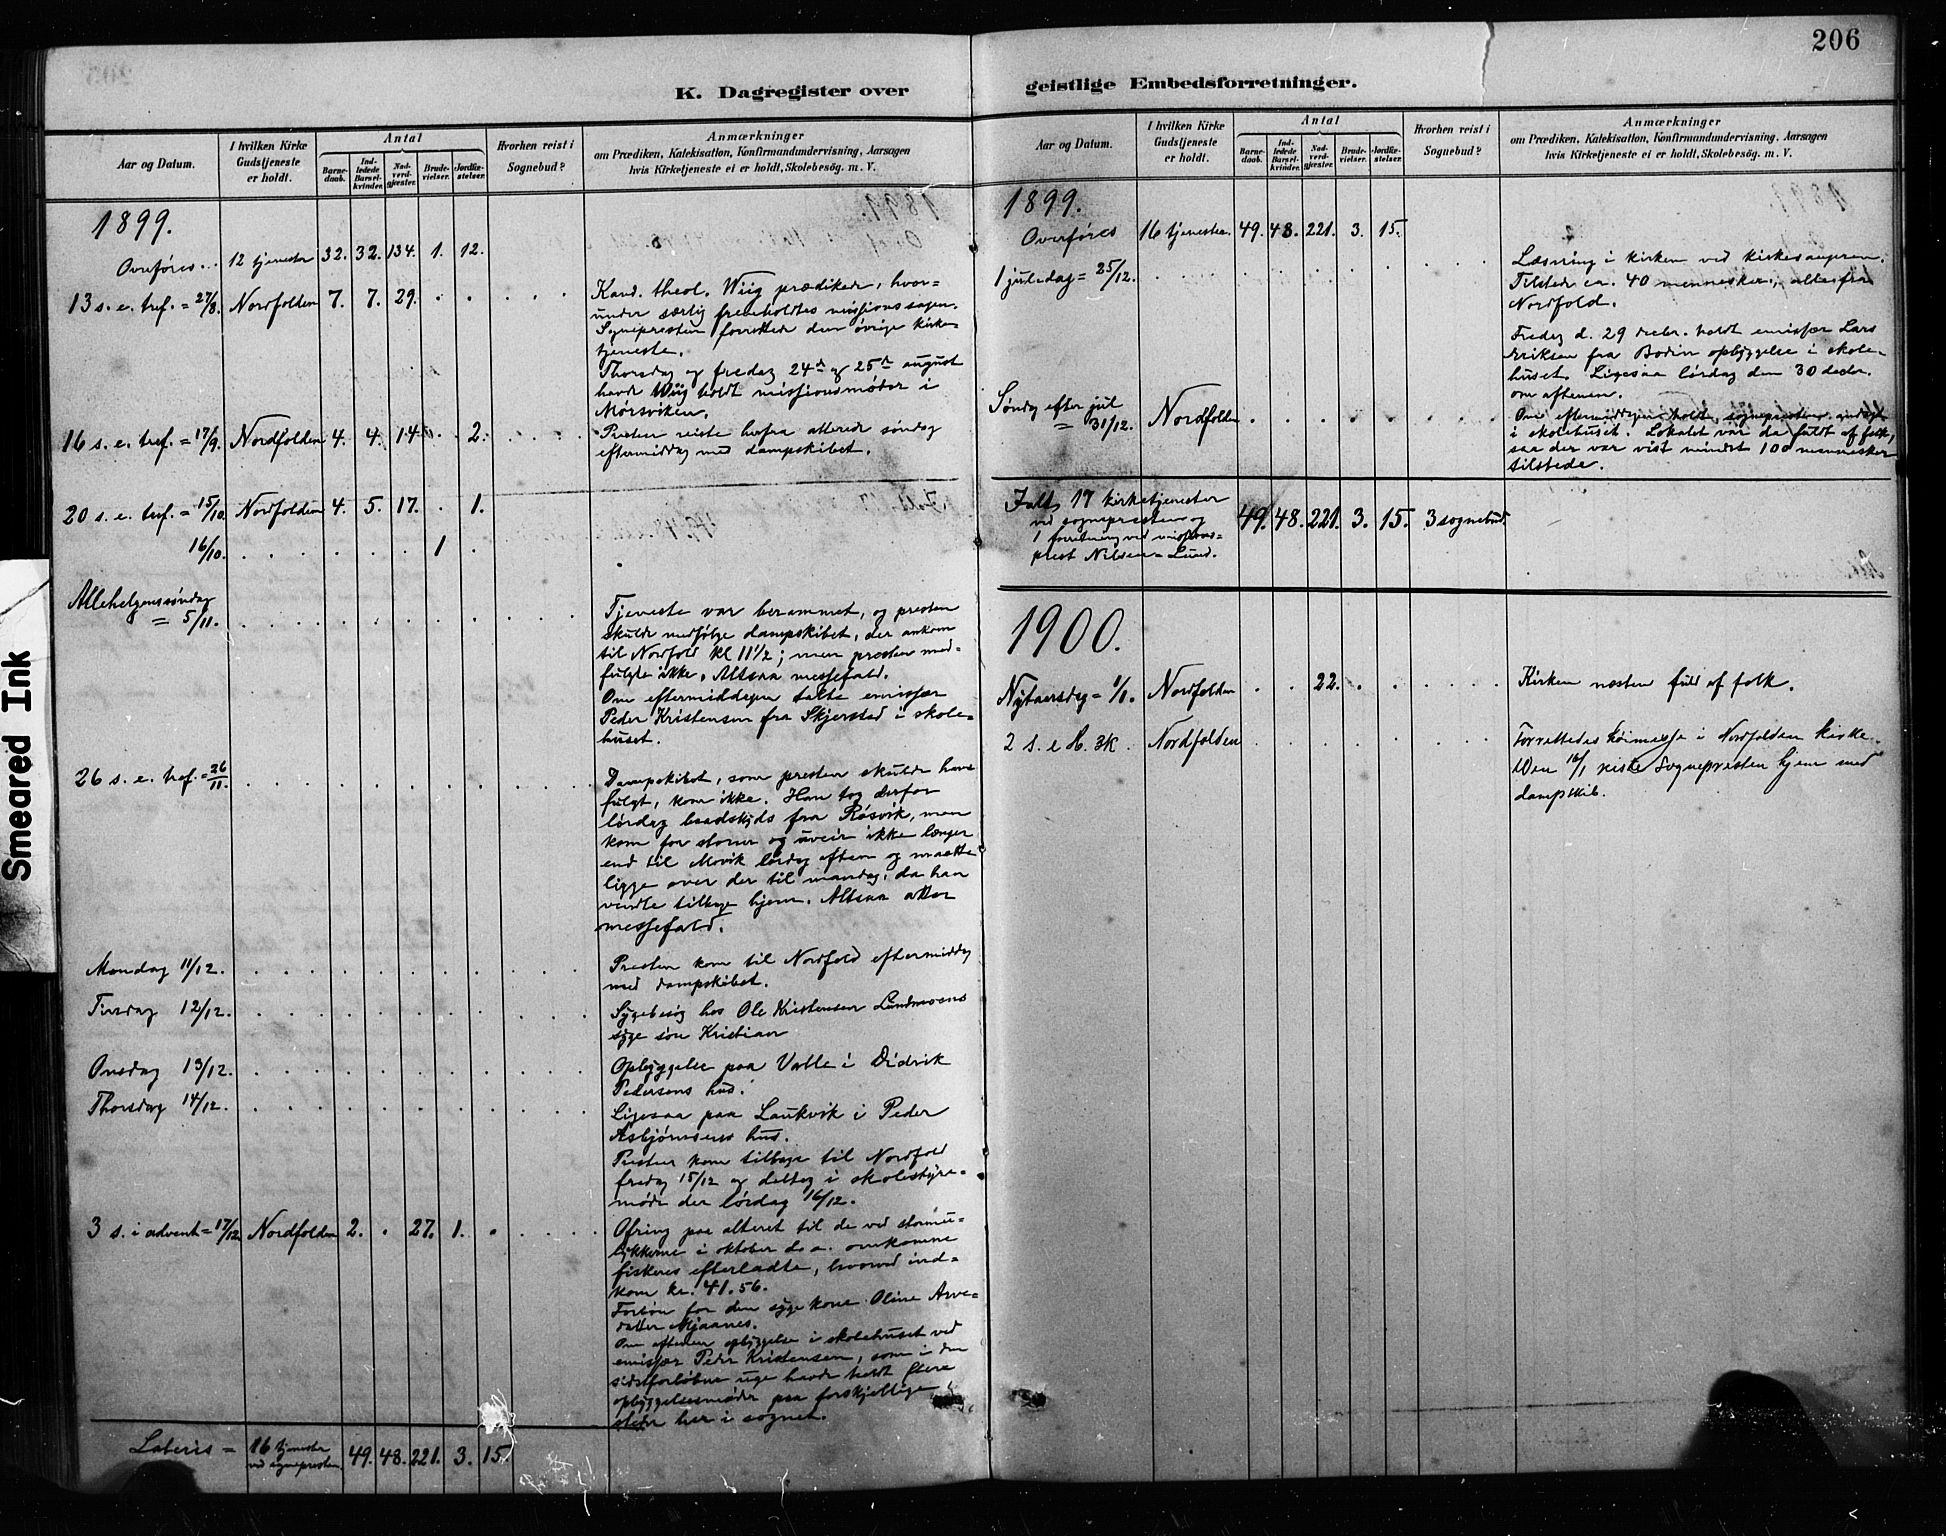 206
K. Dagregister over
geistlige Embedsforretninger.
Aar og Datum.
I hvilken Kirke
Gudstjeneste
er holdt.
Antal
Barne-
daab.
Ind-
ledede
Barsel-
kvinder.
Nad-
verd-
gjester.
Brude-
vielser.
Jordfæ-
stelser.
Hvorhen reist i
Sognebud?
Anmærkninger
om Prædiken, Katekisation, Konfirmandundervisning, Aarsagen
hvis Kirketjeneste ei er holdt, Skolebesøg. m. V.
1899.
Overføres... 12 tjenester 32. 32. 134. 1. 12.
13 s. e. tref. = 27/8. Nordfolden 7. 7. 29.
Kand. theol. Wiig prædiker, hvor=
under særlig fremholdtes missionssagen.
Sognepresten forrettede den øvrige kirke=
tjeneste.
Thorsdag og fredag 24de og 25de august
havde Wiig holdt missionsmøder i
Mørsviken.
16 s. e. tref. = 17/9. Nordfolden 4. 4. 14. 2.
Presten reiste herfra allerede søndag
eftermiddag med dampskibet.
20 s. e. tref. = 15/10. Nordfolden 4. 5. 17. 1.
16/10. 1
Allehelgenssøndag
= 5/11.
Tjeneste var berammet, og presten
skulde medfølge dampskibet, der ankom
til Nordfold kl 11 1/2; men presten med=
fulgte ikke. Altsaa messefald.
Om eftermiddagen talte emissær
Peder Kristensen fra Skjerstad i skole=
huset.
26 s. e. tref. = 26/11.
Dampskibet, som presten skulde have
fulgt, kom ikke. Han tog derfor
lørdag baadskyds fra Røsvik, men
kom for storm og uveir ikke længer
end til Movik lørdag aften og maatte
ligge over der til mandag, da han
vendte tilbage hjem. Altsaa atter
messefald.
Mandag 11/12.
Presten kom til Nordfold eftermiddag
med dampskibet.
Tirsdag 12/12.
Sygebesøg hos Ole Kristensen Lundmoens
syge søn Kristian
Onsdag 13/12.
Opbyggelse paa Valle i Didrik
Pedersens hus.
Thorsdag 14/12.
Ligesaa paa Laukvik i Peder
Asbjørnsens hus.
Presten kom tilbage til Nordfold
fredag 15/12 og deltog i skolestyre=
møde der lørdag 16/12.
3 s. i advent = 17/12 Nordfolden 2. 27. 1.
Ofring paa alteret til de ved stormu=
lykkerne i oktober d. a. omkomne
fiskeres efterladte, hvorved ind=
kom kr. 41.56.
Forbøn for den syge kone Oline Arve=
datter Mjaanes.
Om aftenen opbyggelse i skolehuset ved
emissær Peder Kristensen, som i den
sidstforløbne uge havde holdt flere
opbyggelsesmøder paa forskjellige
steder her i sognet.
Lateris = 16 tjenester
ved sognepresten. 49. 48. 221. 3. 15.
Aar og Datum.
I hvilken Kirke
Gudstjeneste
er holdt.
Antal
Barne-
daab.
Ind-
ledede
Barsel-
kvinder.
Nad-
verd-
gjester.
Brude-
vielser.
Jordfæ-
stelser.
Hvorhen reist i
Sognebud?
Anmærkninger
om Prædiken, Katekisation, Konfirmandundervisning, Aarsagen
hvis Kirketjeneste ei er holdt, Skolebesøg. m. V.
1899.
Overføres 16 tjenester. 49. 48. 221. 3. 15.
1 juledag = 25/12.
Læsning i kirken ved kirkesangeren.
Tilstede ca. 40 mennesker, alle fra
Nordfold.
Fredag d. 29 decbr. holdt emissær Lars
Eriksen fra Bodin opbyggelse i skole=
huset. Ligesaa lørdag den 30 decbr.
om aftenen.
Søndag efter jul
= 31/12. Nordfolden
Om eftermiddagen holdt sognepresten andagt
i skolehuset. Lokalet var da fuldt af folk,
saa der var vist mindst 100 mennesker
tilstede.
Ialt 17 kirketjenester
ved sognepresten og
1 forretning ved missions=
prest Nilsen=Lund. 49. 48. 221. 3. 15. 3 sognebud.
1900.
Nytaarsdag = 1/1. Nordfolden 22.
Kirken næsten fuld af folk.
2 s. e H. 3K. Nordfolden
Forrettedes høimesse i Nordfolden kirke.
Den 16/1 reiste Sognepresten hjem med
dampskib.
Smeared Ink